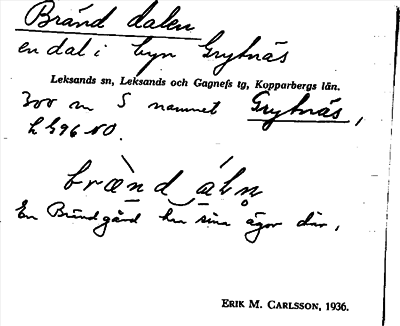 Bränd dalen
en dal i byn Grytnäs
Leksands sn, Leksands och Gagnefs tg, Kopparbergs län.
300 m S namnet Grytnäs,
596 NO.
brænd ɑln
En Brindgård har sina ägor där.
ERIK M. CARLSSON, 1936.